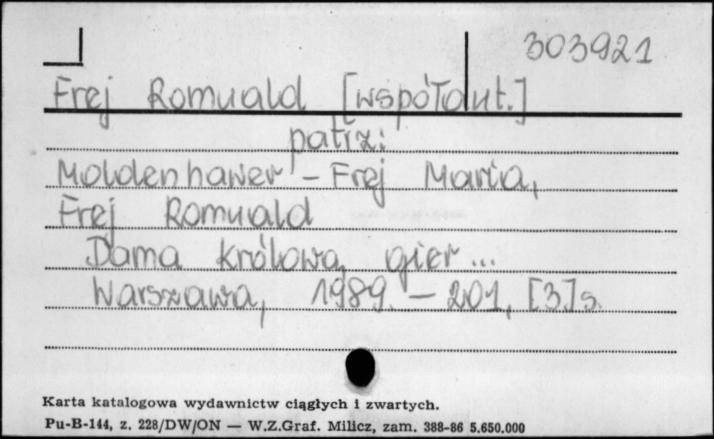 303921
Frej Romuald [współaut.]
patrz:
Moldenhawer - Frej Maria,
Frej Romuald
Dama królową gier...
Warszawa, 1989. - 201, [3] s.
Karta katalogowa wydawnictw ciągłych i zwartych.
Pu-B-144, z. 228/DW/ON — W.Z.Graf. Milicz, zam. 388-86 5.650.000